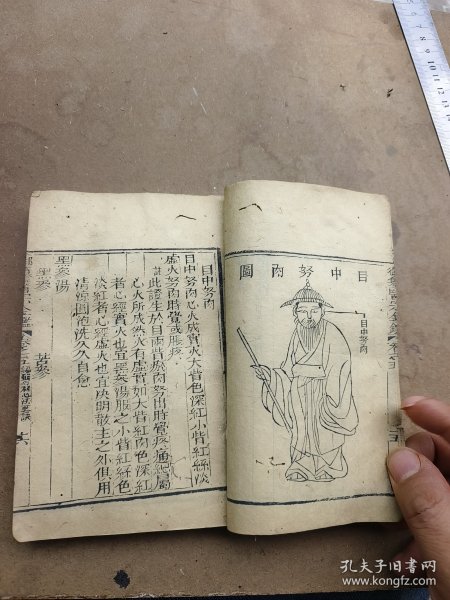 目中努肉圖
目中努肉
目中努肉
目中努肉心火成實火大眥色深紅小眥紅絲淡
虛火努肉時覺或脹疼
註此證生於目兩眥瘀肉努出時覺疼痛總屬
心火所成然火有虛實如大眥紅肉色深紅
者心經實火也宜黑參湯服之小眥紅絲色
淡紅者心經虛火也宜決明散主之外俱用
清凉圓泡洗久自愈
黑參湯
黑參 苦參
孔夫子旧书网
www.kongfz.com